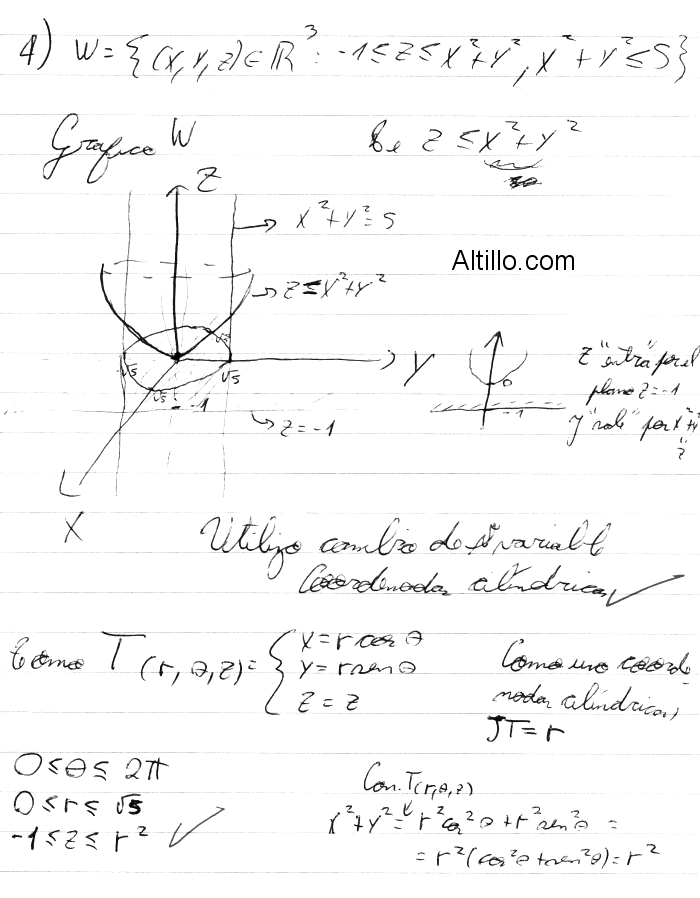 4) W = {(x, y, z) ∈ ℝ³ : -1 ≤ z ≤ x² + y², x² + y² ≤ 5}
Grafico W
z ≤ x² + y²
Z
x² + y² = 5
Altillo.com
z ≤ x² + y²
√5
Y
√5 √5 √5
-1
z = -1
0
-1
z "entra" por el
plano z = -1
y "sale" por x² + y²
z
X
Utilizo cambio de variable
Coordenadas cilíndricas
Como T(r, θ, z) = { x = r cos θ
y = r sen θ
z = z
Como uso coorde
nadas cilíndricas,
JT = r
0 ≤ θ ≤ 2π
0 ≤ r ≤ √5
-1 ≤ z ≤ r²
Con T(r, θ, z)
x² + y² = r² cos² θ + r² sen² θ =
= r² (cos² θ + sen² θ) = r²